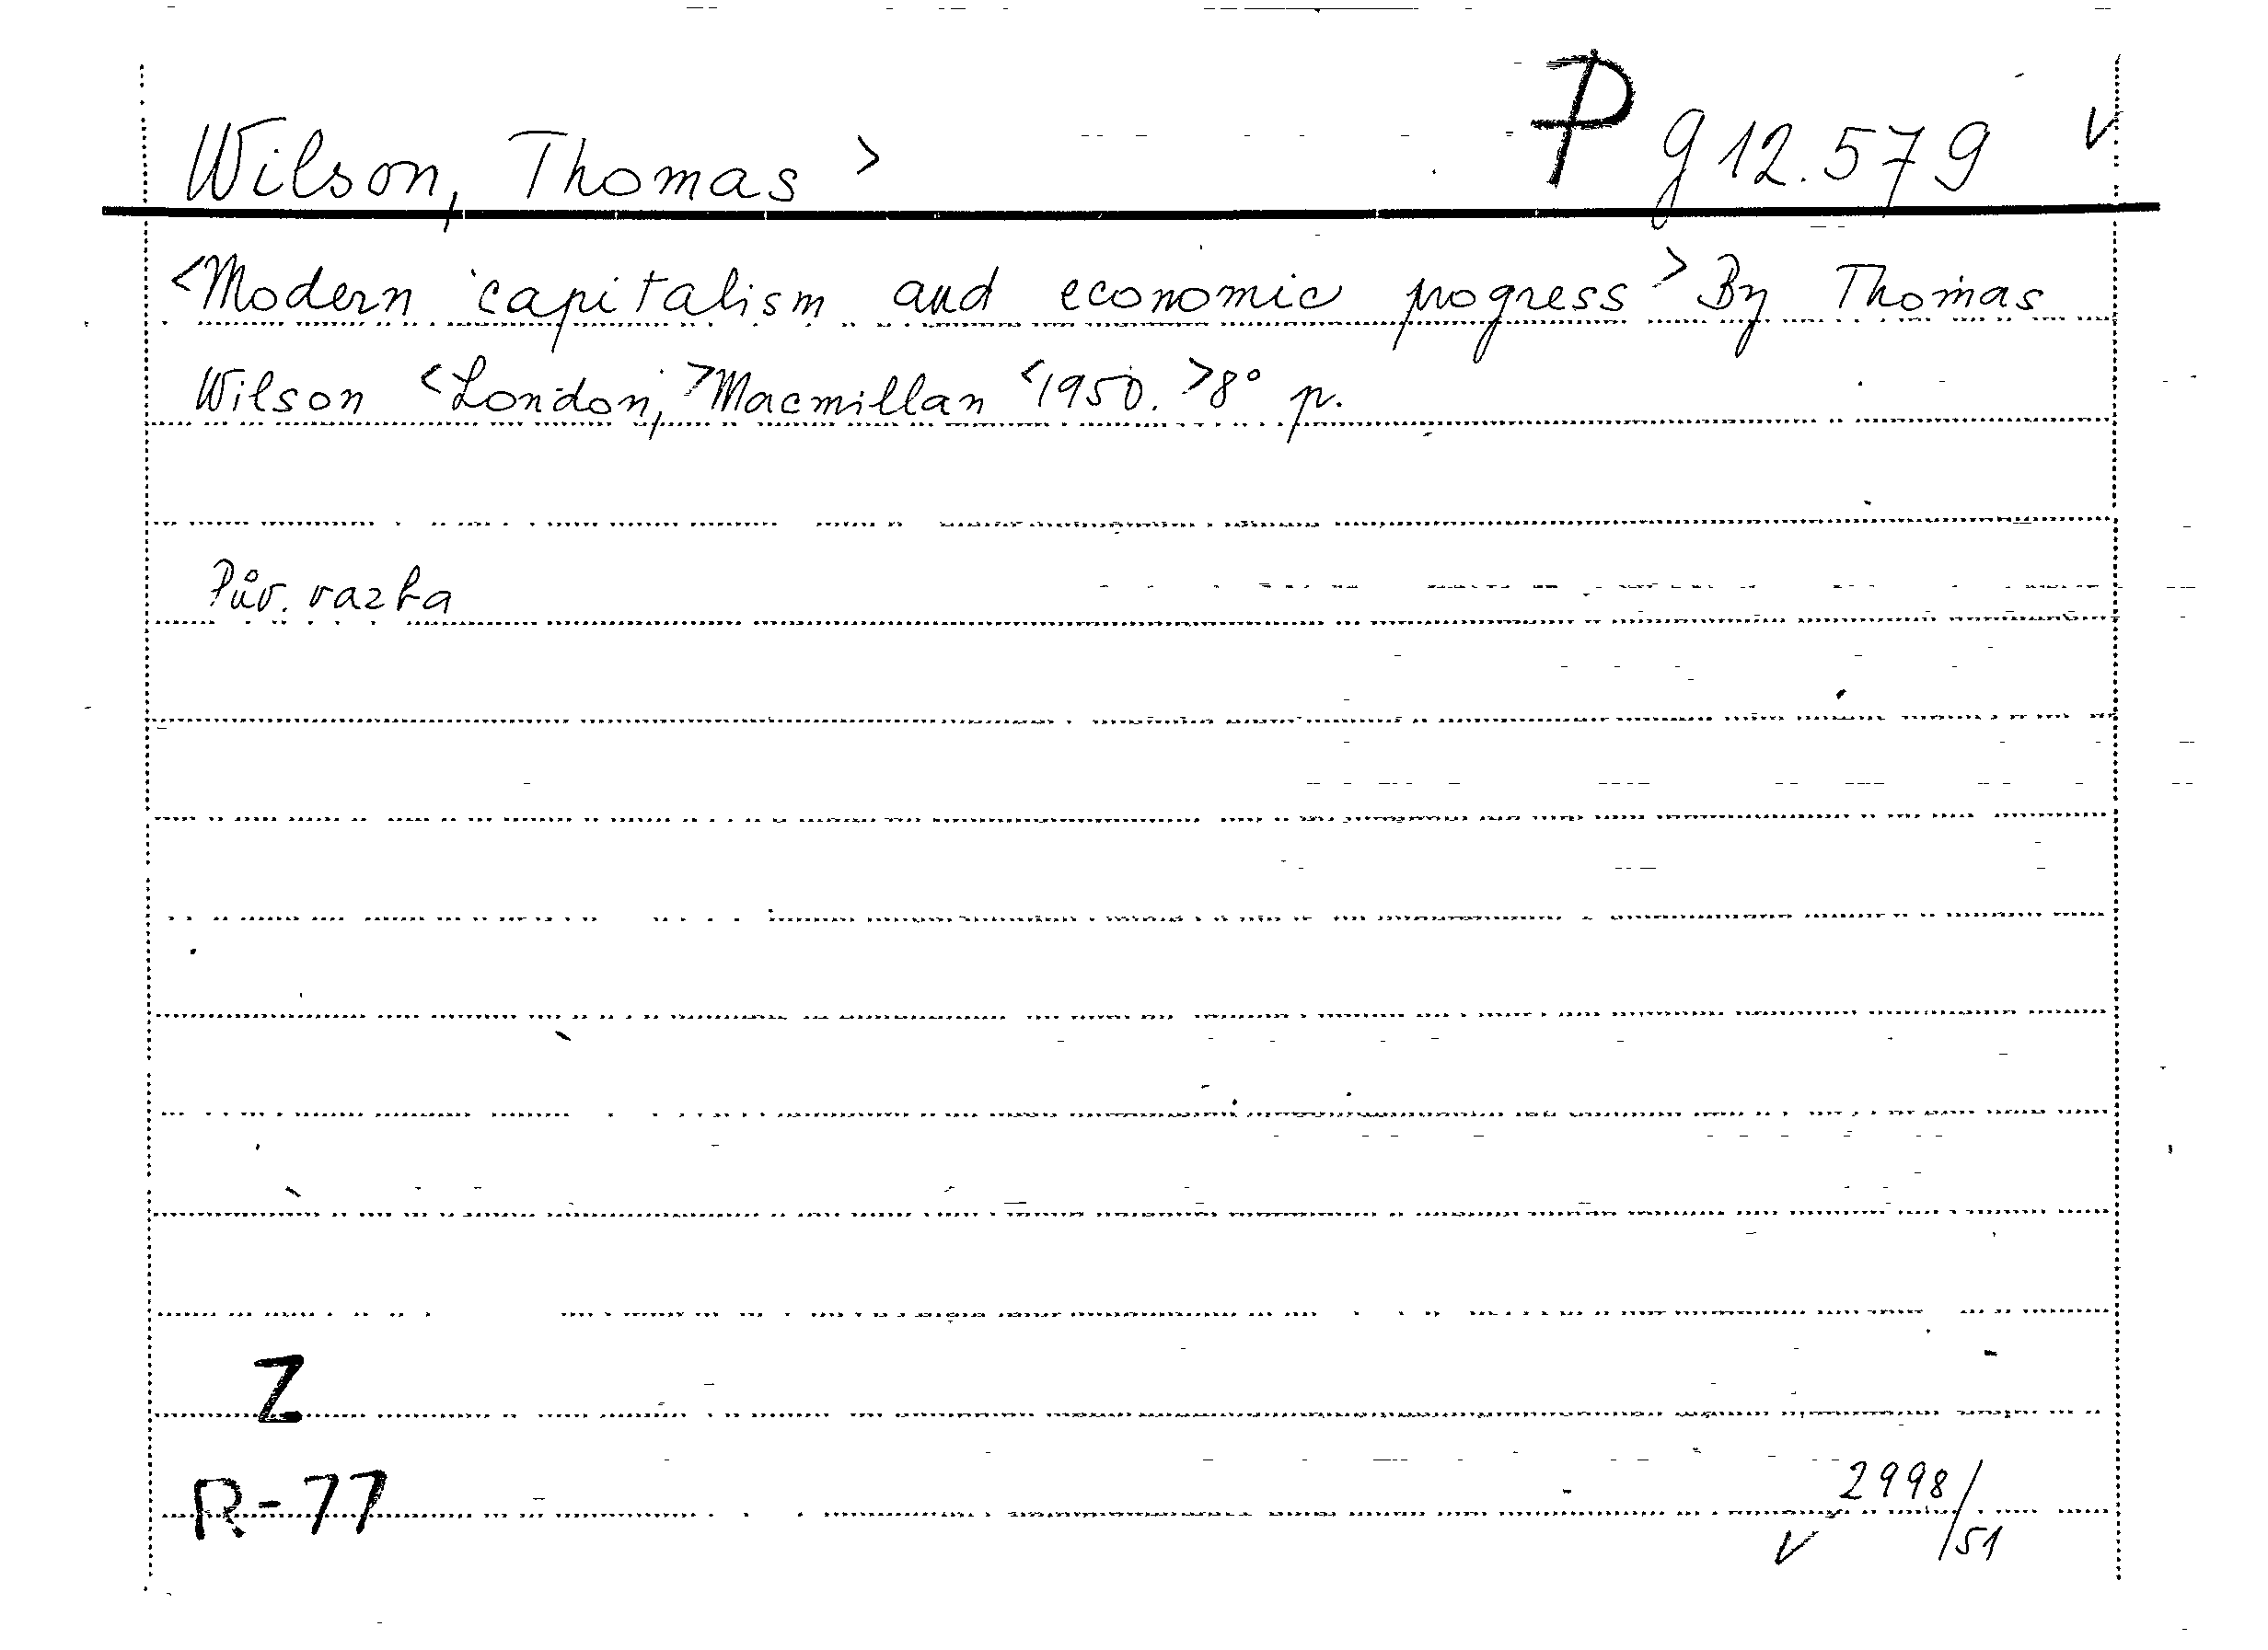 Wilson, Thomas > P g 12.579 v
<Modern capitalism and economic progress> By Thomas
Wilson <London,> Macmillan <1950.> 8° p.
Pův. vazba
Z
R-77
2998/51
v